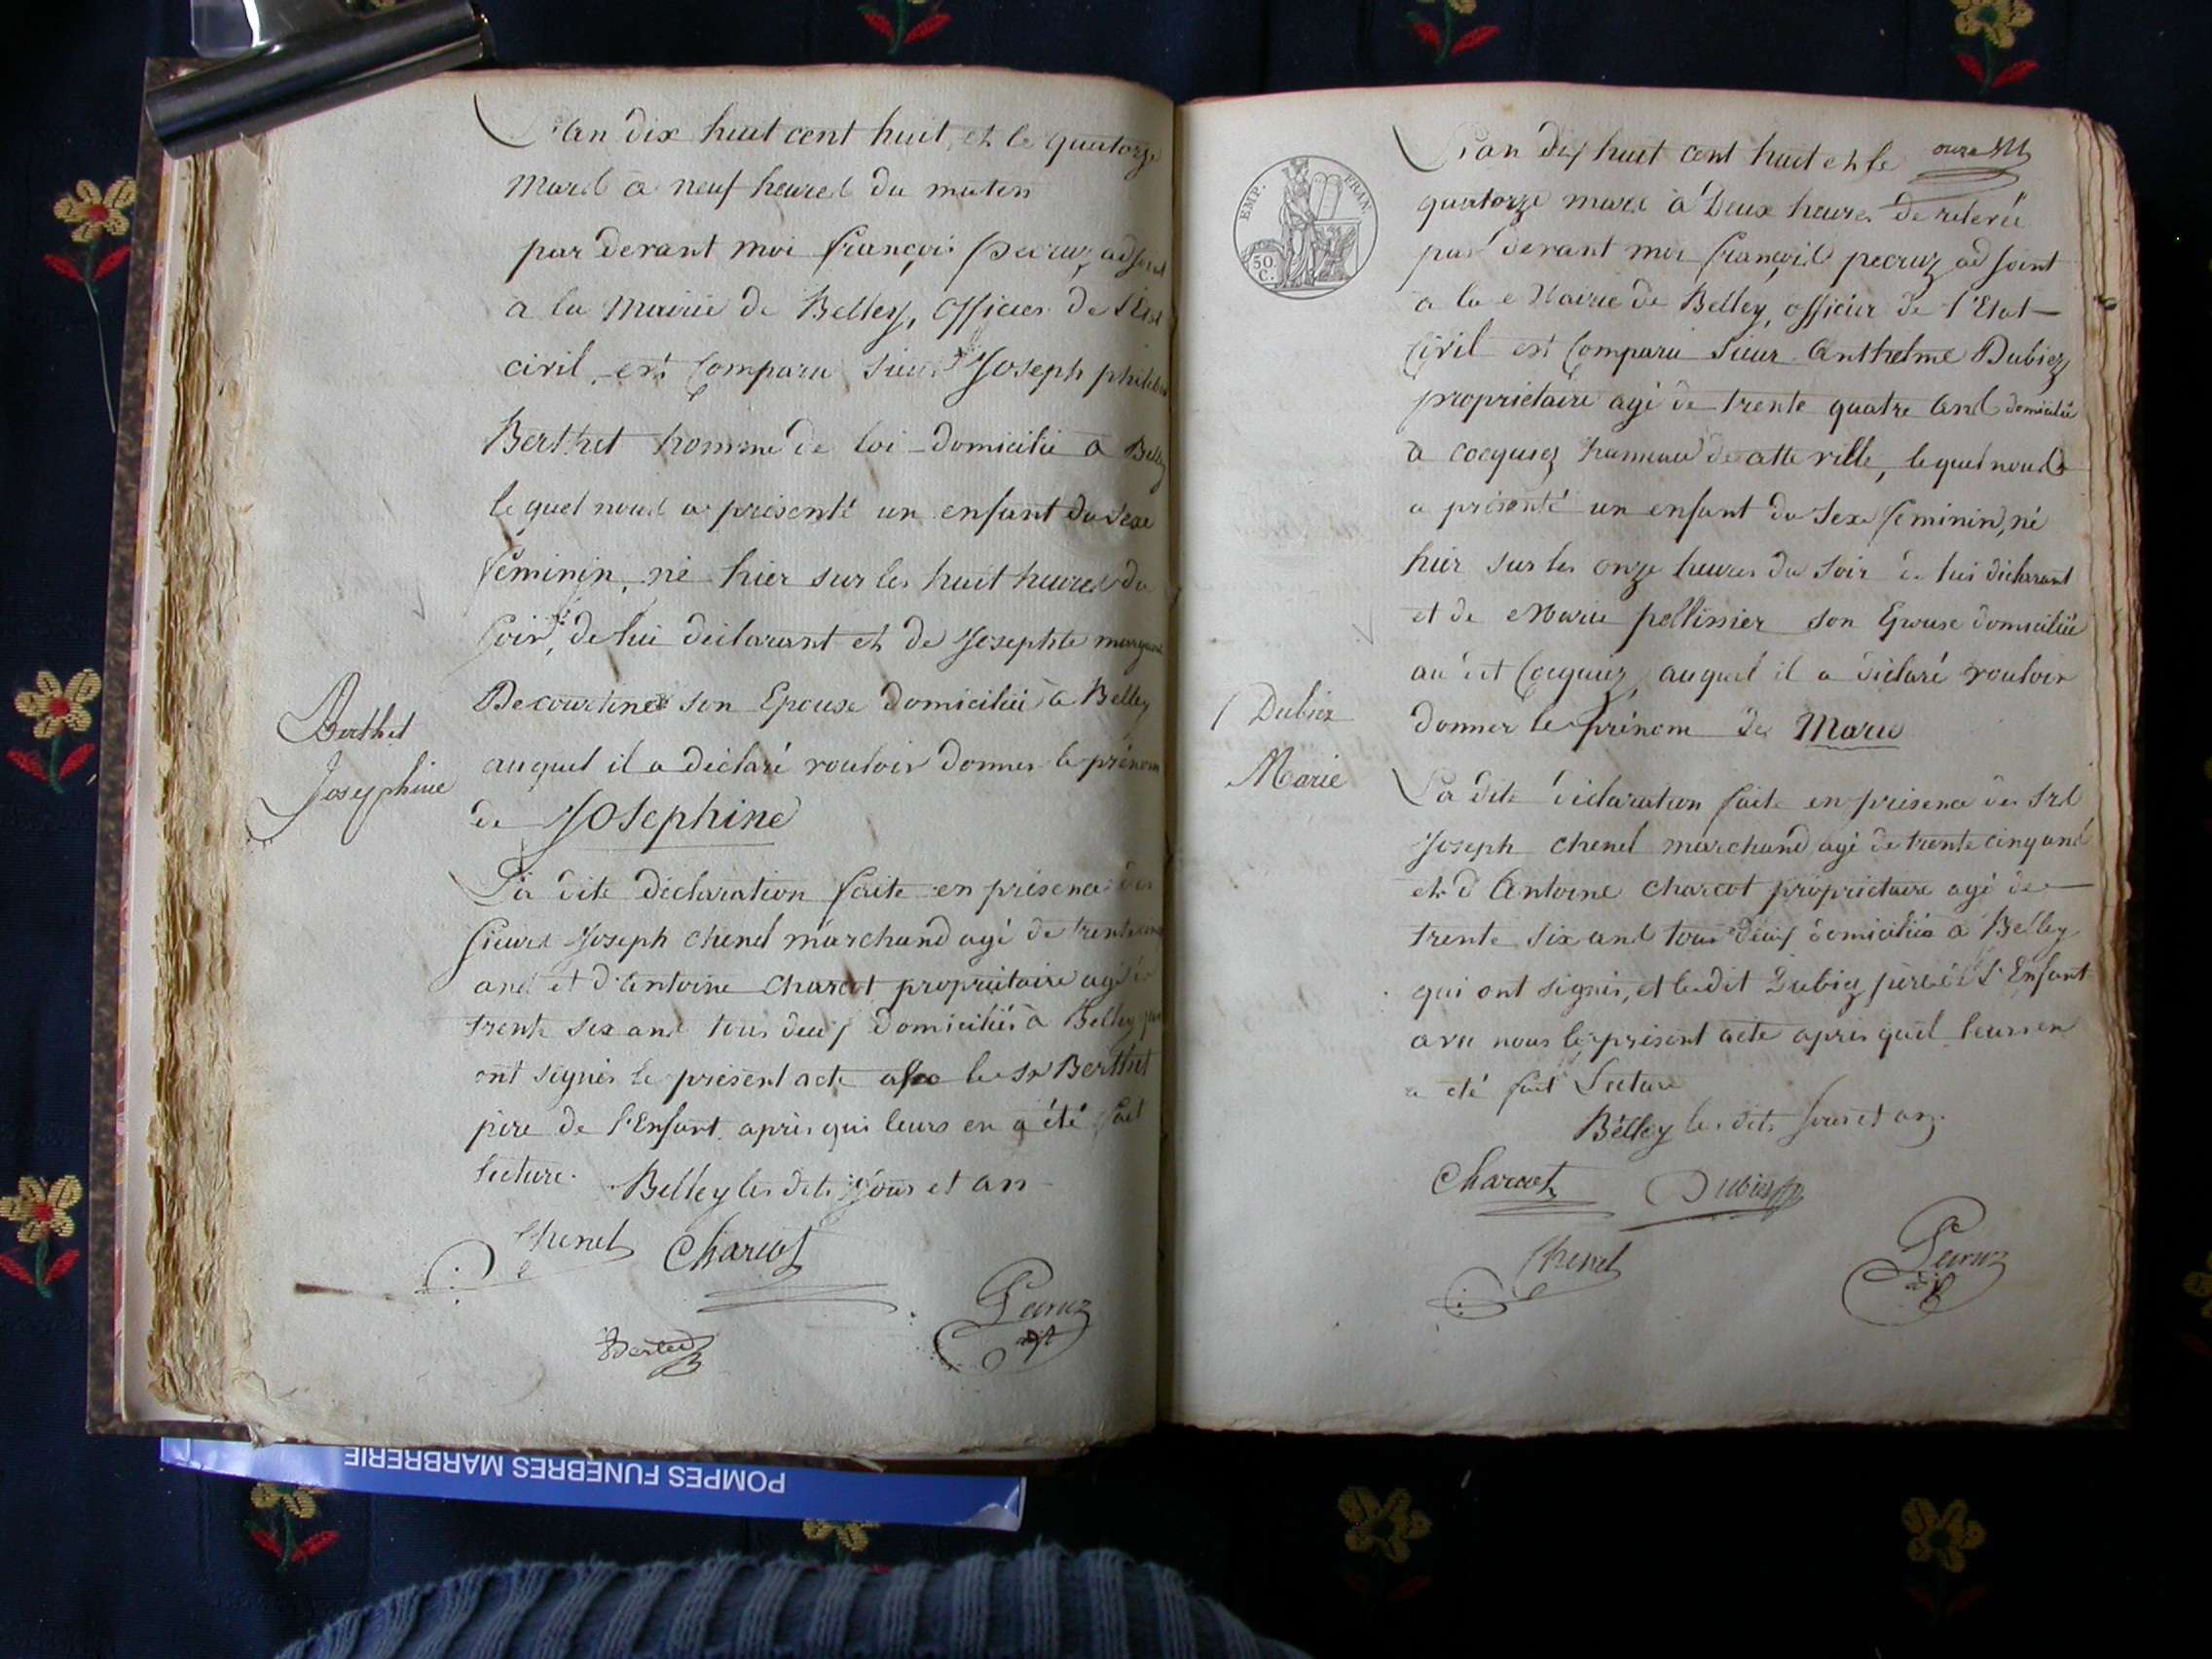 L'an dix huit cent huit, et le quatorze
Mars à neuf heures du matin
par devant moi françois pecruz, adjoint
à la Mairie de Belley, officier de l'Etat
civil, est Comparu Sieur Joseph philibert
Berthet homme de loi domicilié à Belley
lequel nous a présenté un enfant du Sexe
féminin, né hier sur les huit heures du
Soir, de lui déclarant et de Josephte
son Epouse domiciliée à Belley
auquel il a déclaré vouloir donner le prénom
de Josephine
Berthet
Josephine
La dite déclaration faite en présence des
sieurs Joseph Chenel marchand agé de trente cinq
ans et d'Antoine Charcot propriétaire agé de
trente six ans tous deux domiciliés à Belley qui
ont signés le présent acte avec le Sr Berthet
père de l'Enfant, après qui leurs en a été fait
lecture. Belley les dits jour et an
Chenel Charcot
Pecruz
adjt
Berthet
POMPES FUNEBRES MARBRERIE
EMP. FRAN.
50
C.
L'an dix huit cent huit et le
quatorze mars à Deux heures de relevée
par devant moi françois pecruz adjoint
à la Mairie de Belley, officier de l'Etat
Civil est Comparu Sieur Anthelme Dubiez
propriétaire agé de trente quatre ans domicilié
à Cocquiez hameau de cette ville, lequel nous
a présenté un enfant du Sexe féminin, né
hier sur les onze heures du Soir de lui déclarant
et de Marie pellissier son Epouse domiciliée
au dit Cocquiez, auquel il a déclaré vouloir
donner le prénom de Marie
Dubiez
Marie
La dite déclaration faite en présence des Srs
Joseph Chenel marchand agé de trente cinq ans
et d'Antoine Charcot propriétaire agé de
trente six ans tous deux domiciliés à Belley
qui ont signés, et le dit Dubiez père de l'Enfant
avec nous le présent acte après quil leurs en
a été fait Lecture
Belley les dits jour et an.
Charcot Dubiez
Chenel
Pecruz
adjt